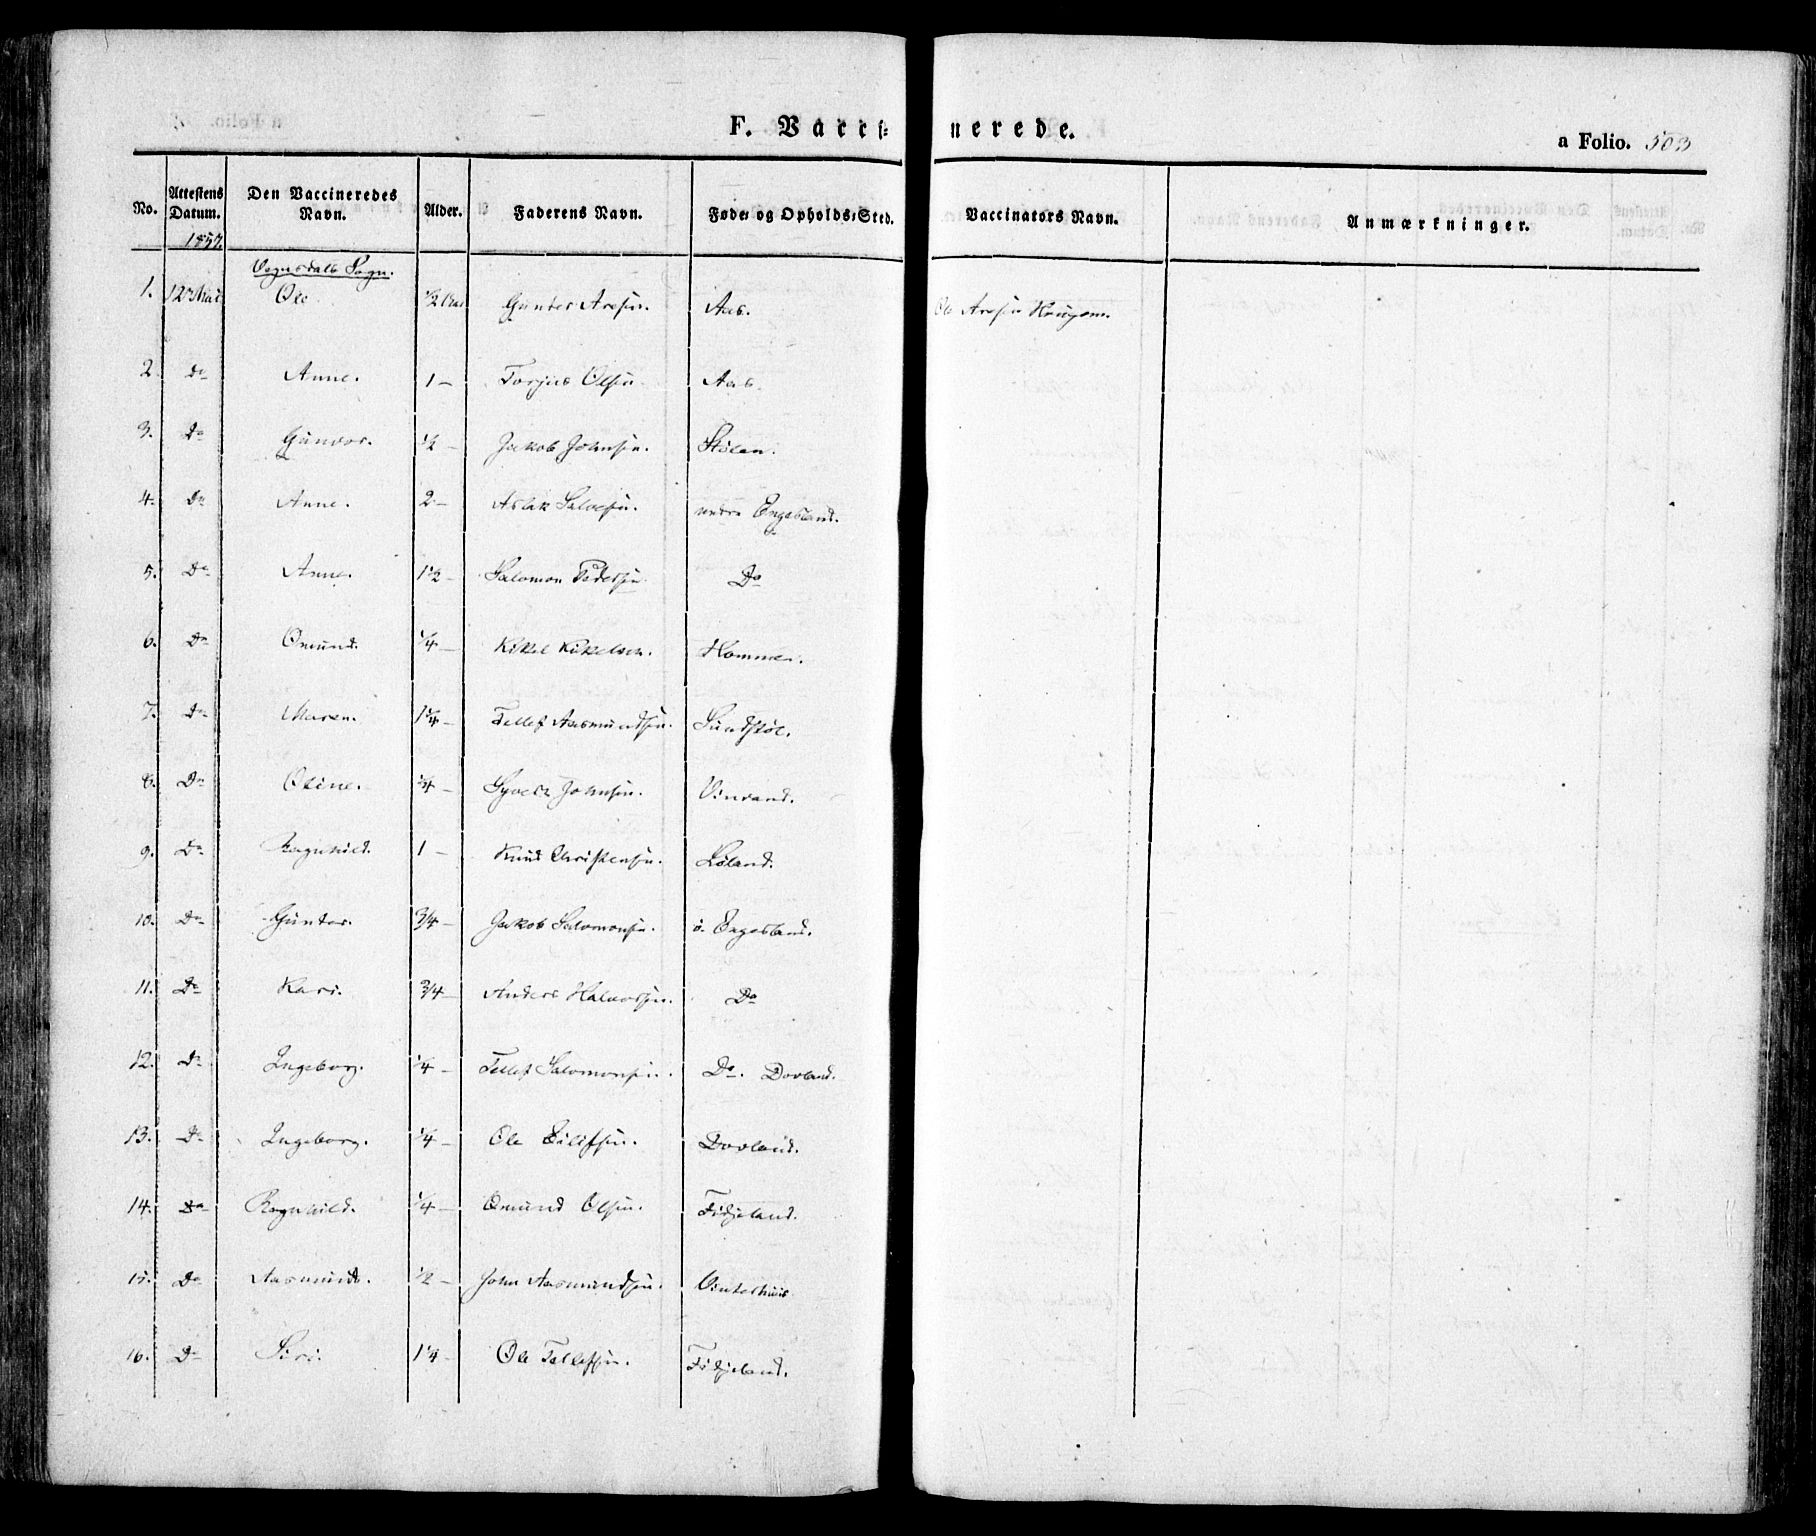 F. Vacci= nerede.
a Folio. 503
No. | Attestens Datum. 1857. | Den Vaccineredes Navn. | Alder. | Faderens Navn. | Føde= og Opholds=Sted. | Vaccinators Navn. | Anmærkninger.
Vegusdals Sogn.
1. | 12 Mai | Ole | 1/2 Aar | Gunder Aresen. | Aas. | Ole Aresen Haugom.
2. | Do | Anne. | 1 – | Torjus Olsen | Aas.
3. | Do | Gunvor. | 1/2 – | Jakob Johnsen. | Stølen.
4. | Do | Anne. | 2 – | Aslak Salvesen. | nedre Engesland.
5. | Do | Anne. | 1 1/2 – | Salomon Pedersen | Do
6. | Do | Omund. | 1/4 – | Kittel Kittelsen. | Hommen.
7. | Do | Maren. | 1 1/4 – | Tellef Aasmundsen. | Sundstøl.
8. | Do | Oline. | 3/4 – | Syvert Johnsen. | Vinrand.
9. | Do | Ragnhild. | 1 – | Knud Christensen. | Løland.
10. | Do | Gunder. | 3/4 – | Jakob Salomonsen. | ø. Engesland.
11. | Do | Kari. | 3/4 – | Anders Halvorsen. | Do
12. | Do | Ingeborg. | 1/4 – | Tellef Salomonsen. | Do. Dovland.
13. | Do | Ingeborg. | 1/4 – | Ole Eilefsen. | Dovland.
14. | Do | Ragnhild. | 1/4 – | Omund Olsen. | Fidjeland.
15. | Do | Aasmund. | 1/2 – | John Aasmundsen. | Vinterhuus
16. | Do | Siri. | 1 1/4 – | Ole Tellefsen. | Fidjeland.